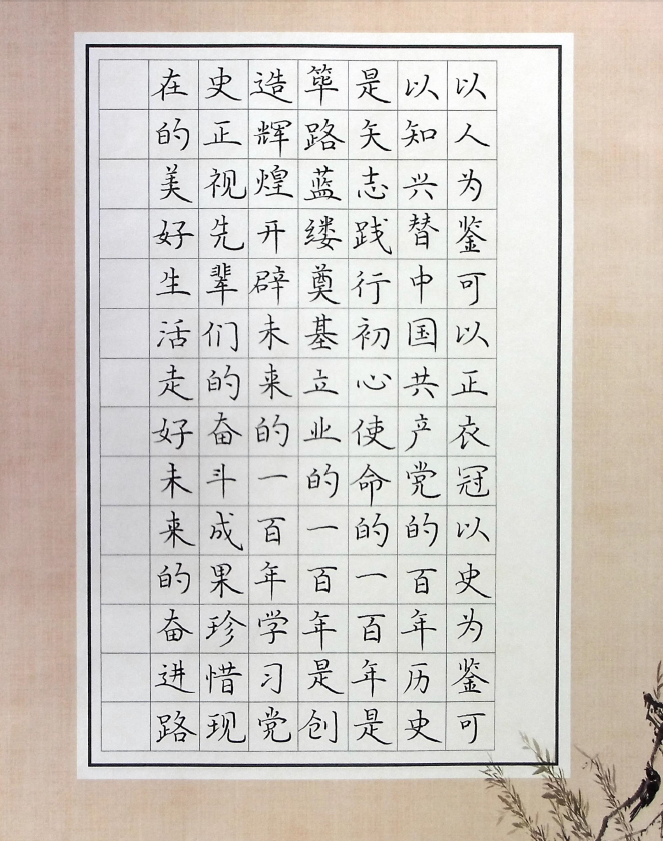 以人为鉴可以正衣冠以史为鉴可
以知兴替中国共产党的百年历史
是矢志践行初心使命的一百年是
筚路蓝缕奠基立业的一百年是创
造辉煌开辟未来的一百年学习党
史正视先辈们的奋斗成果珍惜现
在的美好生活走好未来的奋进路